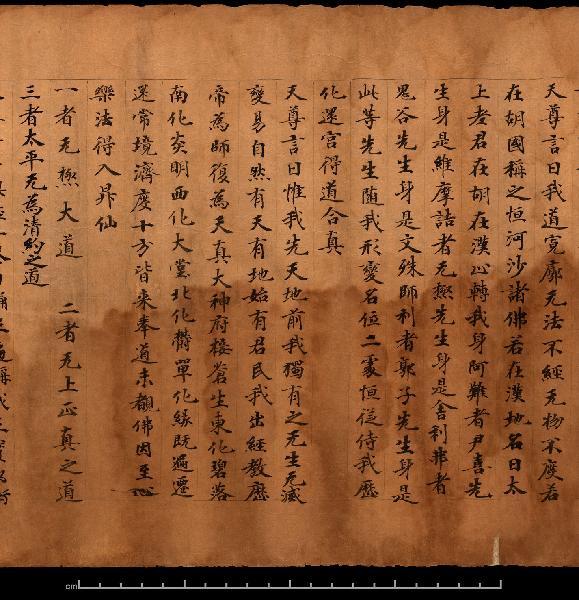 天尊言曰我道寬廓无法不經无物不度若
在胡國稱之恒河沙諸佛若在漢地名曰太
上老君在胡在漢心轉我身阿難者尹喜先
生身是維摩詰者无極先生身是舍利弗者
鬼谷先生身是文殊師利者郭子先生身是
此等先生随我形變名位二處恒從侍我歷
化還宮得道合真
天尊言曰惟我先天地前我獨有之无生无滅
變易自然有天有地始有君民我出經教歷
帝為師復為天真大神府接蒼生東化碧落
南化炎明西化大堂北化欝單化緣既遍遷
還常境濟度十方皆来奉道未覩佛因至心
樂法得入昇仙
一者无極大道 二者无上正真之道
三者太平无為清約之道